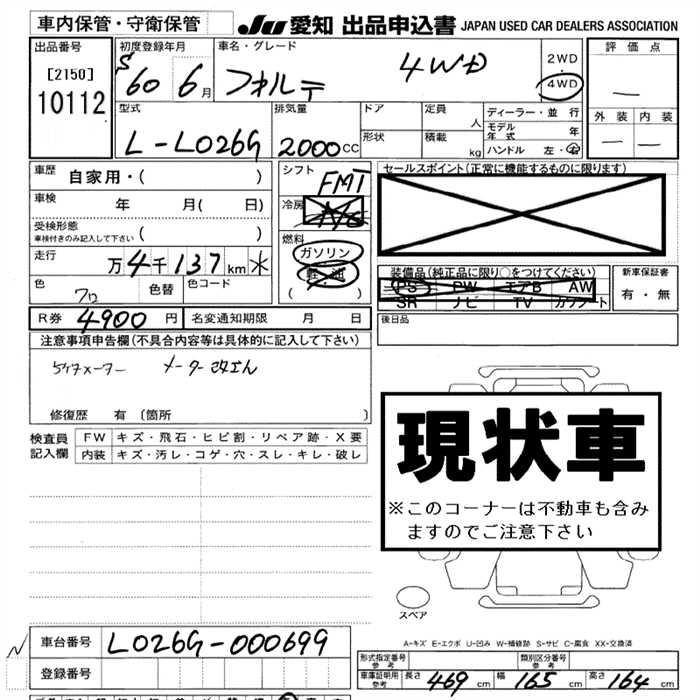 車内保管・守衛保管 JU 愛知 出品申込書 JAPAN USED CAR DEALERS ASSOCIATION
出品番号 初度登録年月 車名・グレード 評価点
[2150] S 60 6月 フォルテ 4WD 2WD
10112 4WD —
型式 排気量 ドア 定員 人 ディーラー・並行 外装 内装
L-L026G 2000cc 形状 積載 kg モデル年式 年 — —
ハンドル 左・右
車歴 自家用・( ) シフト FMT セールスポイント(正常に機能するものに限ります)
車検 年 月( 日) 冷房 A/C
受検形態 車検付きのみ記入して下さい ( ) 燃料 ガソリン
走行 万4千137km * 軽油 装備品(純正品に限り○をつけてください) 新車保証書
色 色替 色コード ( ) PS PW エアB AW 有・無
SR ナビ TV カワシート
R券 4900円 名変通知期限 月 日 後日品
注意事項申告欄(不具合内容等は具体的に記入して下さい)
5ケタメーター メーター改ざん
修復歴 有(箇所 )
検査員記入欄 FW キズ・飛石・ヒビ割・リペア跡・X要
内装 キズ・汚レ・コゲ・穴・スレ・キレ・破レ
現状車
※このコーナーは不動車も含み
ますのでご注意下さい
スペア
A-キズ E-エクボ U-凹み W-補修跡 S-サビ C-腐食 XX-交換済
車台番号 L026G-000699
登録番号 形式指定番号 参考 類別区分番号 参考
車庫証明用 参考 長さ 469cm 幅 165cm 高さ 164cm